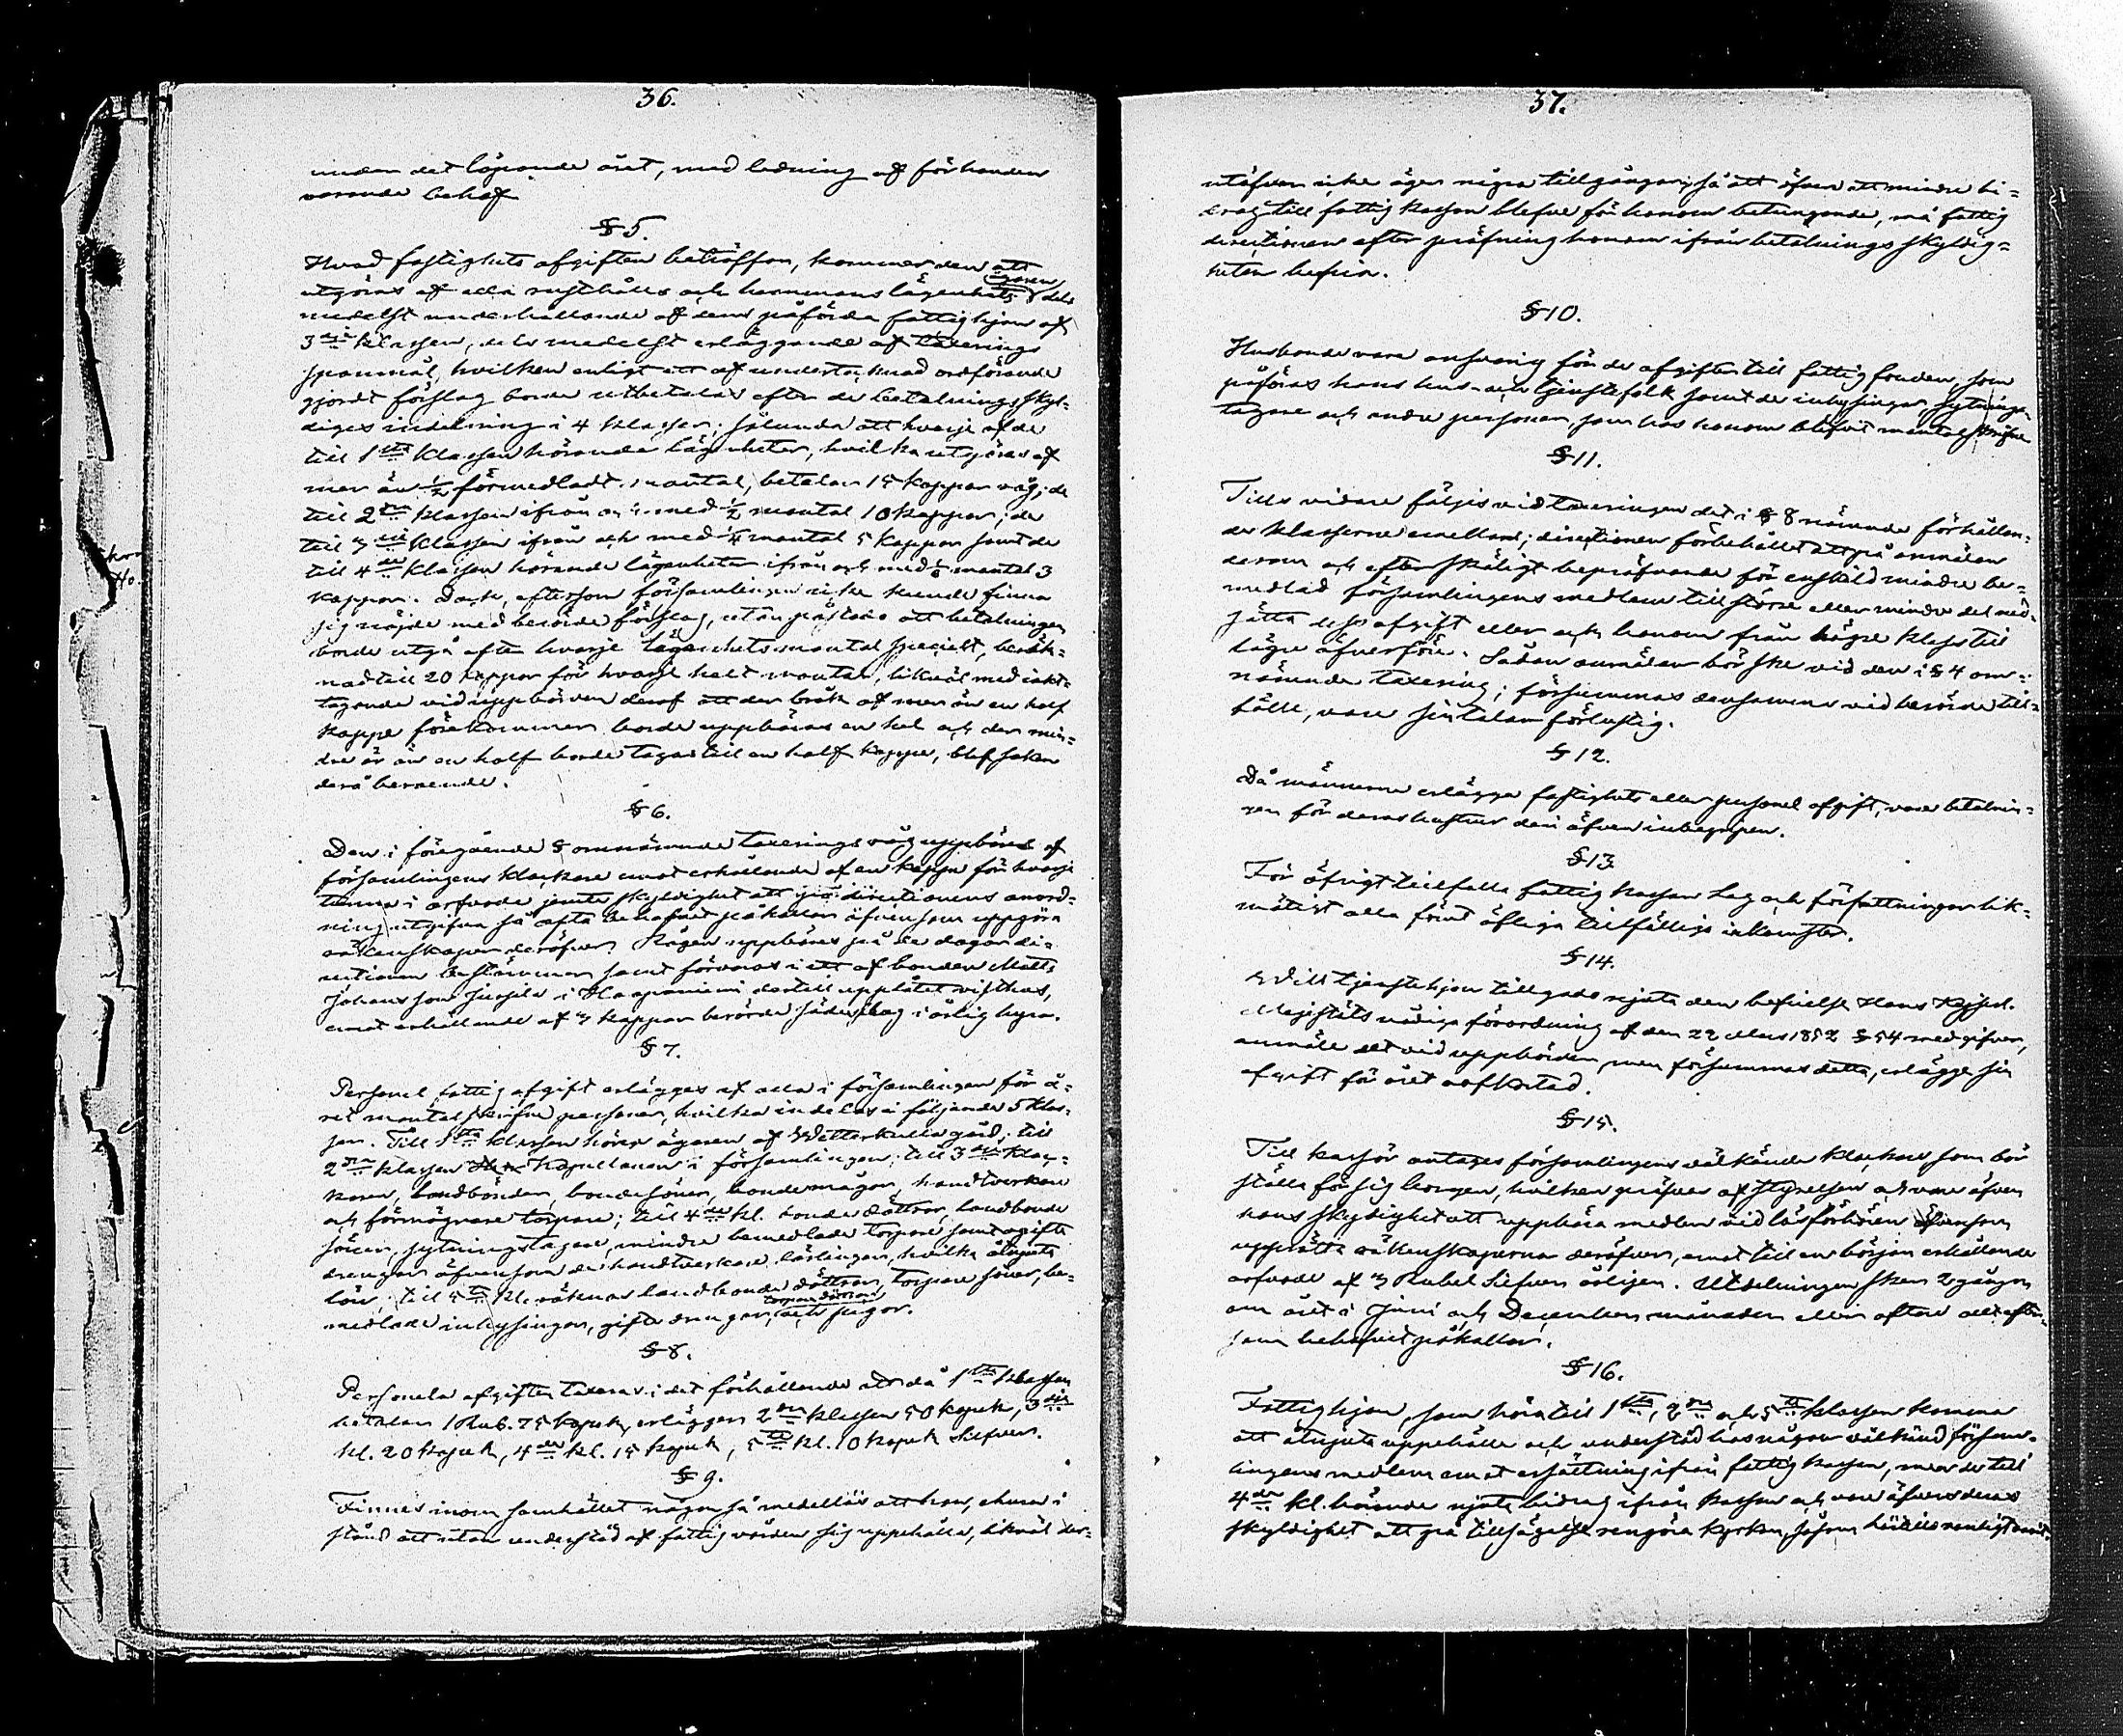 36.
under det löpande året, med ledning af förhanden
varande behof.
§ 5.
Hvad fastighets afgiften beträffar, kommer den att
utgöras af alla rusthålls och hemmans lägenhets ägaren dels
medelst underhållande af dem påförda fattighjon af
3dje klassen, dels medelst erläggande af taxerings
spanmål, hvilken enligt ett af undertecknad ordförande
gjordt förslag borde utbetalas efter de betalningsskyl-
diges indelning i 4 klasser; sålunda att hvarje af de
till 1sta klassen hörande lägenheter, hvilka utgöras af
mer än 1/2 förmedladt mantal, betalar 15 kappar råg; de
till 2dra klassen ifrån och med 1/2 mantal 10 kappar; de
till 3dje klassen ifrån och med 1/4 mantal 5 kappar samt de
till 4de klassen hörande lägenheter ifrån och med mantal 3
kappar. Dock, eftersom församlingen icke kunde finna
sig nöjde med berörde förslag, utan påstodo att betalningen
borde utgå efter hvarje lägenhets mantal specielt, beräk-
nad till 20 kappar för hvarje helt mantal, likväl med iakt-
tagande vid uppbörden deraf att der bråk af mer än en half
kappe förekommer borde uppbäras en hel och der min-
dre är än en half borde tagas till en half kappe, blef saken
derå beroende.
§ 6.
Den i föregående § omnämnde taxerings råg uppbäres af
församlingens klockare emot erhållande af en kappe för hvarje
tunna i arfvode jemte skyldighet att på direktionens anord-
ning utgifva så ofta behofvet påkallar äfvensom uppgöra
räkenskaper deröfver. Rågen uppbäres på de dagar di-
rektionen bestämmer samt förvaras i ett af bonden Matts
Johansson Jussila i Haapaniemi dertill upplåtet visthus,
emot erhållande af 3 kappar berörde sädesslag i årlig hyra.
§ 7.
Personel fattig afgift erlägges af alla i församlingen för å-
ret mantalskrifne personer, hvilka indelas i följande 5 klas-
ser. Till 1sta klassen hörer ägaren af Wetterkulla gård; till
2dra klassen Kapellanen i församlingen; till 3dje kloc-
karen, landbönder, bondesöner, bondemågar, handtverkare
och förmögnare torpare; till 4de kl. bonde döttrar, landbonde
söner, sytningstagare, mindre bemedlade torpare samt ogifta
drengar äfvensom de handtverkare lärlingar, hvilka åtnjuta
lön; till 5te kl. räknas landbonde döttrar, torpare söner, be-
medlade inhysingar, gifta drengar, torpare döttrar samt pigor.
§ 8.
Personela afgiften taxeras i det förhållande att då 1sta klassen
betalar 1 Rub. 75 kopek, erlägger 2dra klassen 50 kopek, 3dje
kl. 20 kopek, 4de kl. 15 kopek, 5te kl. 10 kopek Silfver.
§ 9.
Finnes inom samhället någon så medellös att han, ehuru i
stånd att utan understöd af fattig vården sig uppehålla, likväl der-
37.
utöfver icke äger några tillgångar, så att äfven ett mindre bi-
drag till fattig kassan blefve för honom betungande, må fattig
direktionen efter pröfning honom ifrån betalnings skyldig-
heten befria.
§ 10.
Husbonde vare ansvarig för de afgifter till fattig fonden, som
påföras hans hus- och tjenstefolk samt de inhysingar, sytnings-
tagare och andre personer, som hos honom blifvit mantalskrifne
§ 11.
Tills vidare följes vid taxeringen det i § 8 nämnde förhållan-
de klasserne emellan; direktionen förbehållet att på anmälan
derom och efter skäligt bepröfvande för enskild mindre be-
medlad församlingens medlem till större eller mindre del ned-
sätta dess afgift eller och honom från högre klass till
lägre öfverföra. Sådan anmälan bör ske vid den i § 4 om-
nämnde taxering; försummas densamma vid berörde till-
fälle, vare sin talan förlustig.
§ 12.
Då männerne erlägga fastighets eller personel afgift, vare betalnin-
gen för deras hustrur deri äfven inbegripen.
§ 13.
För öfrigt tillfalla fattig kassan Lag och författningar lik-
mätigt alla förut öfliga tillfälliga inkomster.
§ 14.
Vill tjenstehjon tillgodo njuta den befrielse Hans Kejserl.
Majestäts nådiga förordning af den 22 Mars 1852 § 54 medgifver,
anmäle det vid uppbörden, men försummas detta, erlägge sin
afgift för året oafkortad.
§ 15.
Till kassör antages församlingens välkände klockare, som bör
ställa för sig borgen, hvilken pröfvas af styrelsen och vare äfven
hans skyldighet att uppbära medlen vid läsförhören äfvensom
upprätta räkenskaperna deröfver, emot till en början erhållande
arfvode af 3 Rubel Silfver årligen. Utdelningen sker 2 gånger
om året i Juni och December månader eller oftare allt efter-
som behofvet påkallar.
§ 16.
Fattighjon, som höra till 1sta, 2dra och 3dje klassen komma
att åtnjuta uppehälle och understöd hos någon välkänd försam-
lingens medlem emot ersättning ifrån fattig kassan, men de till
4de kl. hörande njuta bidrag ifrån kassan och vare äfven deras
skyldighet att på tillsägelse rengöra kyrkan, såsom hittills vanligt varit.